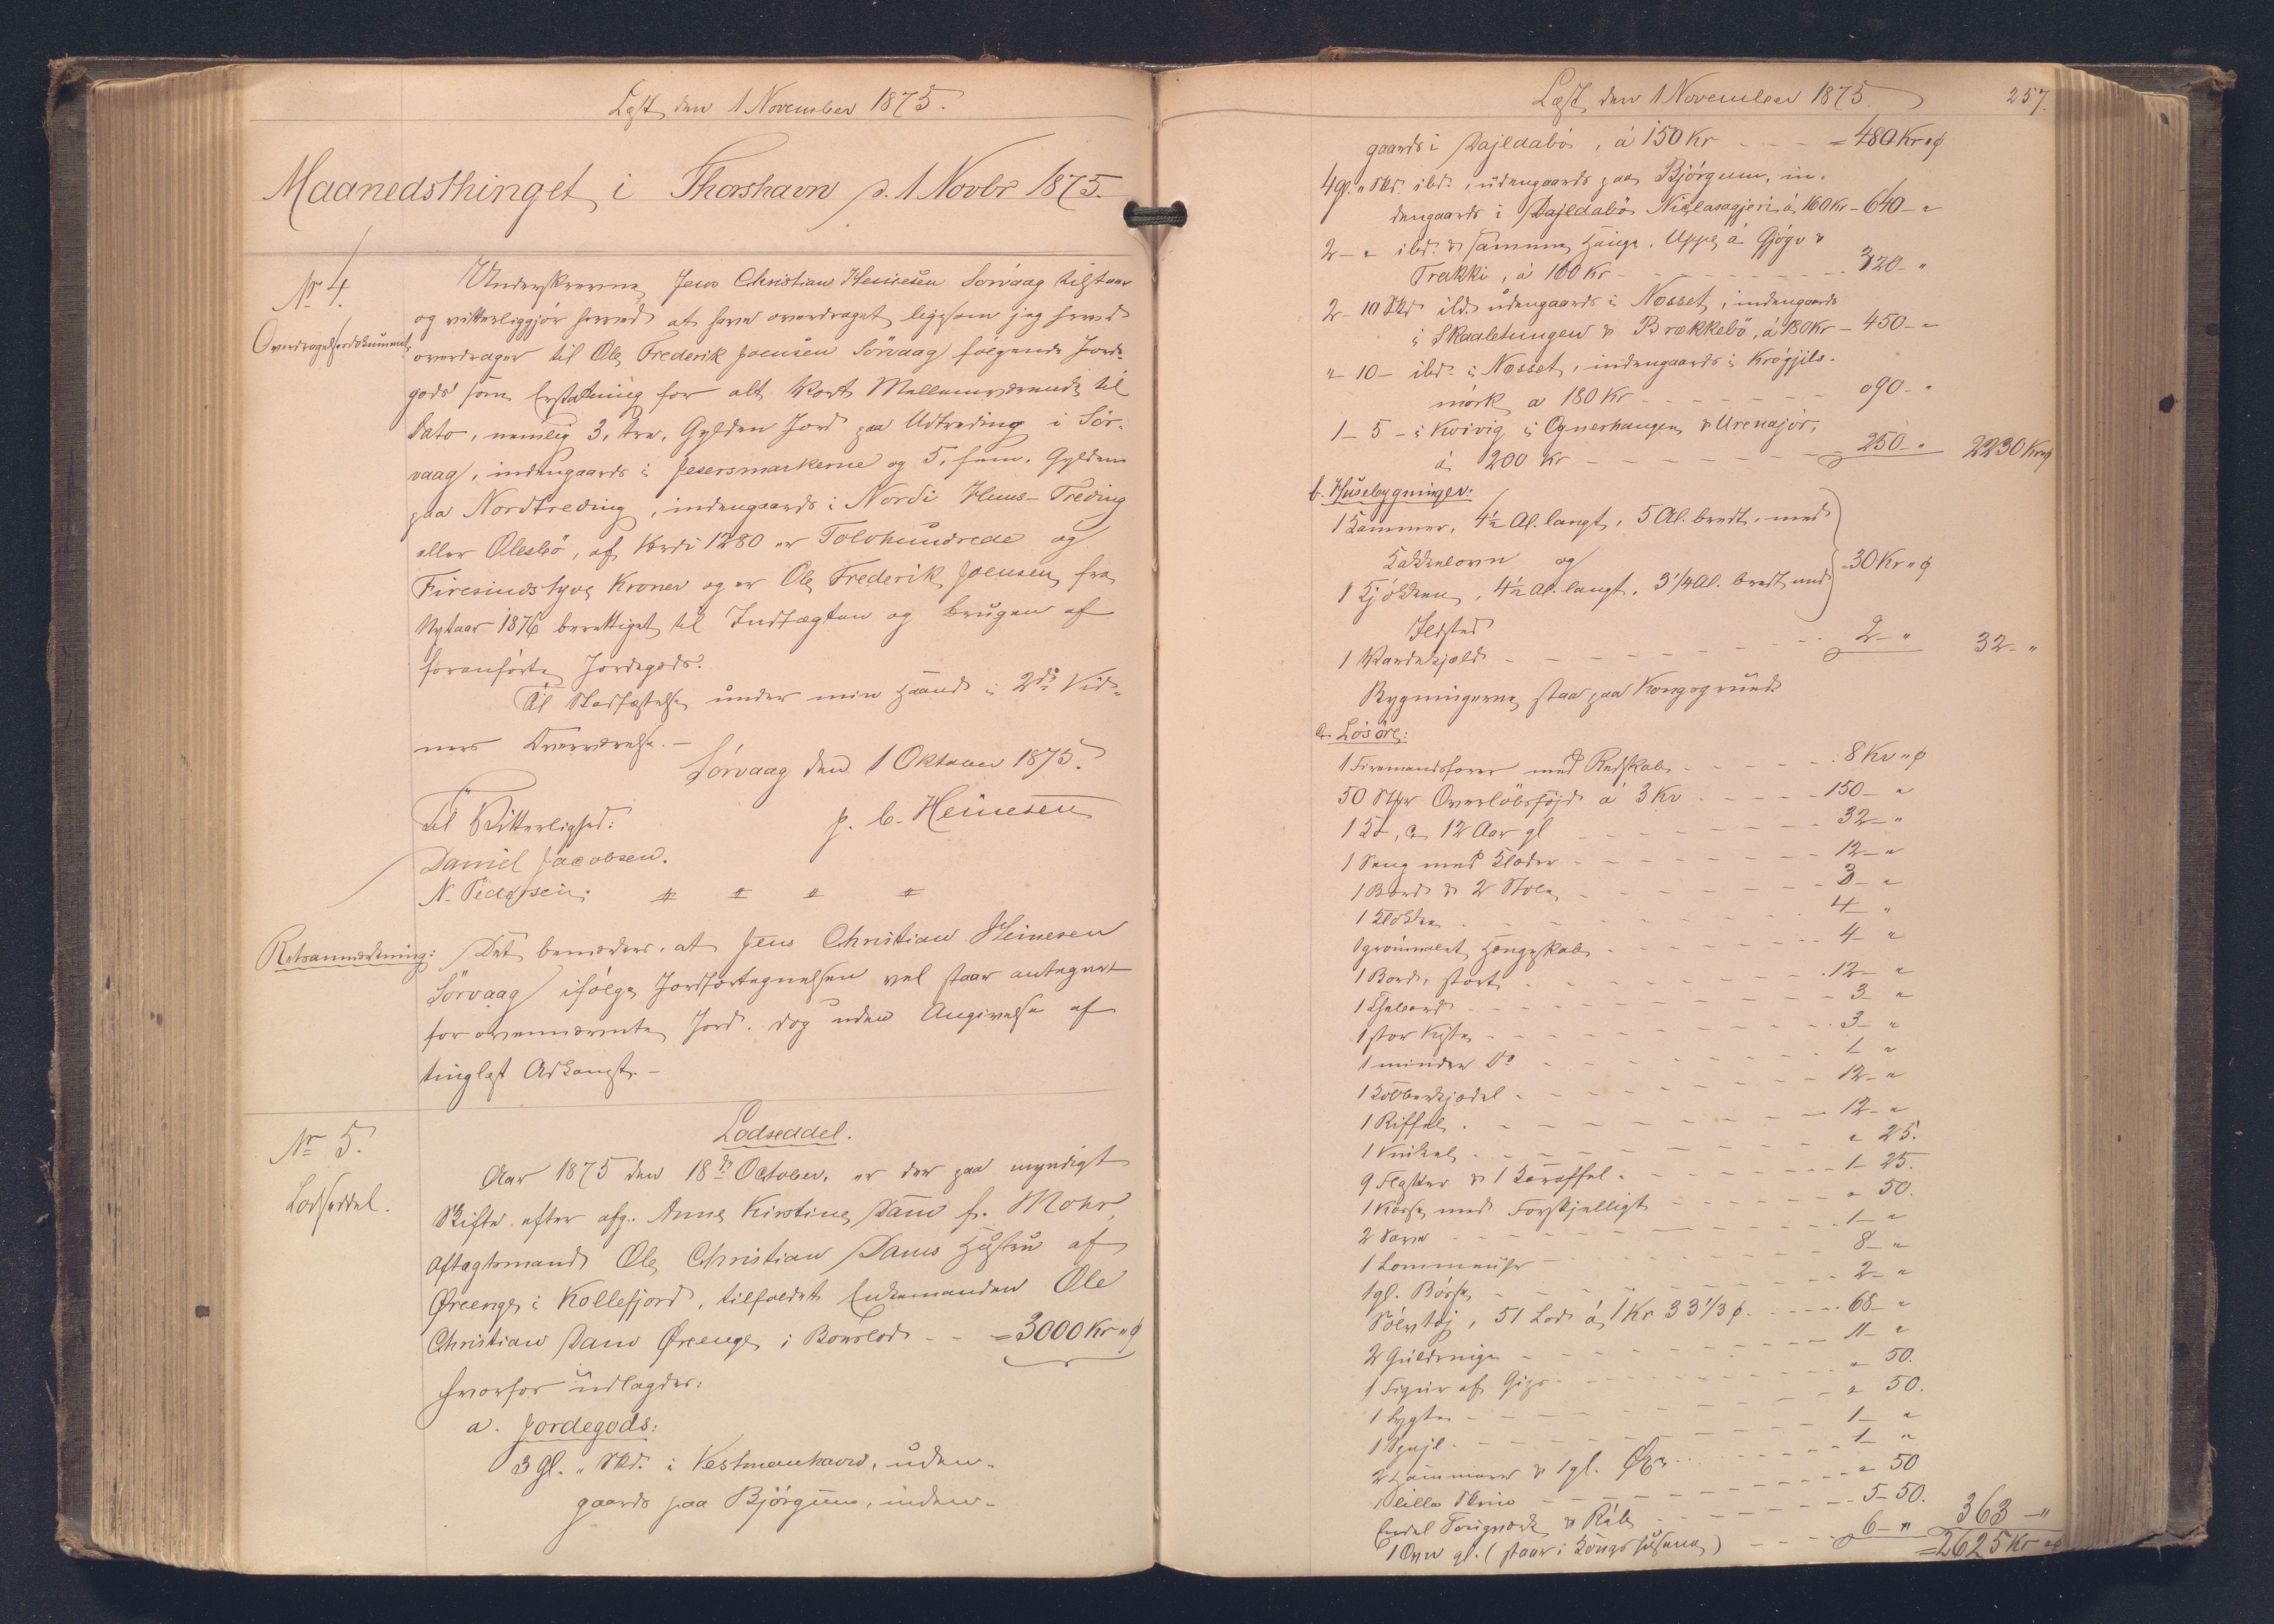 Læst den 1 November 1875.
Maanedsthinget i Thorshavn d. 1 Novbr 1875.
No 4.
Overdragelsesdokument.
Underskrevne Jens Christian Heinesen Sörvaag tilstaar
og vitterliggjör herved at have overdraget ligesom jeg herved
overdrager til Ole Frederik Joensen Sörvaag fölgende Jorde-
gods som Erstatning for alt vort Mellemværende til
Dato, nemlig 3, tre, Gylden Jord paa Udtreding i Sör-
vaag, indengaards i Jesersmarkerne og 5, fem, Gylden
paa Nordtreding, indengaards i Nordi Huus-Treding
eller Olesbö, af Værdi 1280 er Tolvhundrede og
Firesindstyve Kroner og er Ole Frederik Joensen fra
Nytaar 1876 berettiget til Indtægten og Brugen af
foranförte Jordegods.
Til Stadfæstelse under min Haand i 2de Vid-
ners Overværelse.-
Sörvaag den 1 Oktober 1875.
J. C. Heinesen
Til Vitterlighed:
Daniel Jacobsen.
N. Pedersen.
Retsanmærkning:
Det bemærkes, at Jens Christian Heinesen
Sörvaag ifölge Jordfortegnelsen vel staar antegnet
for ovennævnte Jord, dog uden Angivelse af
tinglæst Adkomst.-
No 5.
Lodseddel.
Lodseddel.
Aar 1875 den 18de October, er der paa myndigt
Skifte efter afg. Anne Kirstine Dam f. Mohr,
Aftægtsmand Ole Christian Dams Hustru af
Øreenge i Kollefjord, tilfaldet Enkemanden Ole
Christian Dam Øreenge i Boeslod - - = 3000 Kr " ø
hvorfor udlagdes:
a. Jordegods:
3 Gl. " Skd. i Vestmanhavn, uden-
gaards paa Björgum, inden-
Læst den 1 November 1875.
257.
gaards i Dajldabö, á 150 Kr - - - = 480 Kr " ø
4 gl. " Skd. ibd., udengaards paa Björgum, in-
dengaards i Dajldabö Niclasagjeri á 160 Kr - 640 - "
2 - " ibd. &  Hauge, Uppe á Gjógv &
Trakki, á 160 Kr - - - 320 - "
2 - 10 Skd ibd. udengaards i Nosset, indengaards
i Skaaletungen & Brekkebö, á 180 Kr - 450 - "
" - 10 - ibd. i Nosset, indengaards i Krógjils-
mörk a 180 Kr - - - 90 - "
1 - 5 - i Kvivig i Ognerhaugen & Urenajör,
á 200 Kr - - - 250 - " 2230 Kr " ø
b. Husebygninger:
1 Kammer, 4 1/2 Al. langt, 5 Al. bredt, med
Kakkelovn og
1 Kjökken, 4 1/2 Al. langt, 3 1/4 Al. bredt med
Ildsted
30 Kr " ø
1 - - - 2 - " 32 - "
Bygningerne staa paa Kongsgrund.
c. Lösöre:
1 Firemandsfarer med Redskab - - - 8 Kr " ø
50 Stkr Overlöbsföjd á 3 Kr - - - 150 - "
1 Ko, ca 12 Aar gl - - - 32 - "
1 Seng med Klæder - - - 12 - "
1 Bord & 2 Stole - - - 3 - "
1 Klokke - - - 4 "
1 grönmalet Hængeskab - - - 4 - "
1 Bord, stort - - - 12 - "
1 Thebord - - - 3 - "
1 stor Kiste - - - 3 - "
1 mindre Do - - - 1 - "
1 Kobberkjedel - - - 12 - "
1 Riffel - - - 12 - "
1 Vinkel - - - " 25.
9 Flasker & 1 Karaffel - - - 1 - 25.
1 Kasse med Forskjelligt - - - " 50.
2 Save - - - 1 - "
1 Lommeuhr - - - 8 - "
1 gl. Bösse - - - 2 - "
Sölvtöj, 51 Lod á 1 Kr 33 1/3 ø - - - 68 - "
2 Guldringe - - - 11 - "
1 Figur af Gips - - - " 50.
1 Lygte - - - " 50.
1 Spejl - - - 1 - "
2 Hammere & 1 gl. Øxe - - - 1 - "
1 lille Skrin - - - " 50
Endel & - - - 5 - 50.
1 Ovn gl. (staar i Kongshusene) - - - 6 - " 363 - "
= 2625 Kr " ø